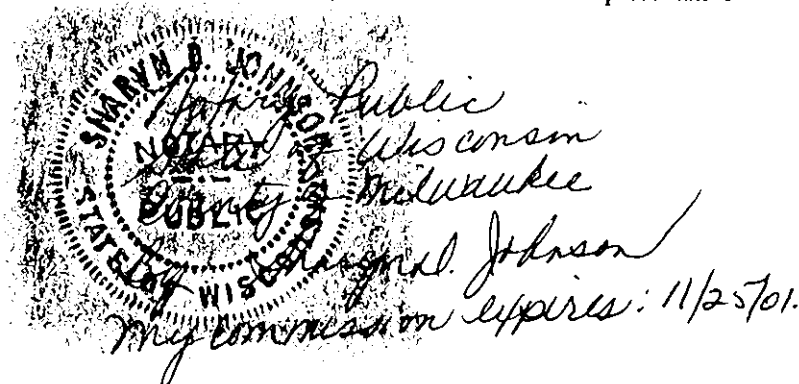 SHARYN D. JOHNSON
NOTARY
PUBLIC
STATE OF WISCONSIN
Notary Public
State of Wisconsin
County of Milwaukee
By Sharyn D. Johnson
My commission expires: 11/25/01.